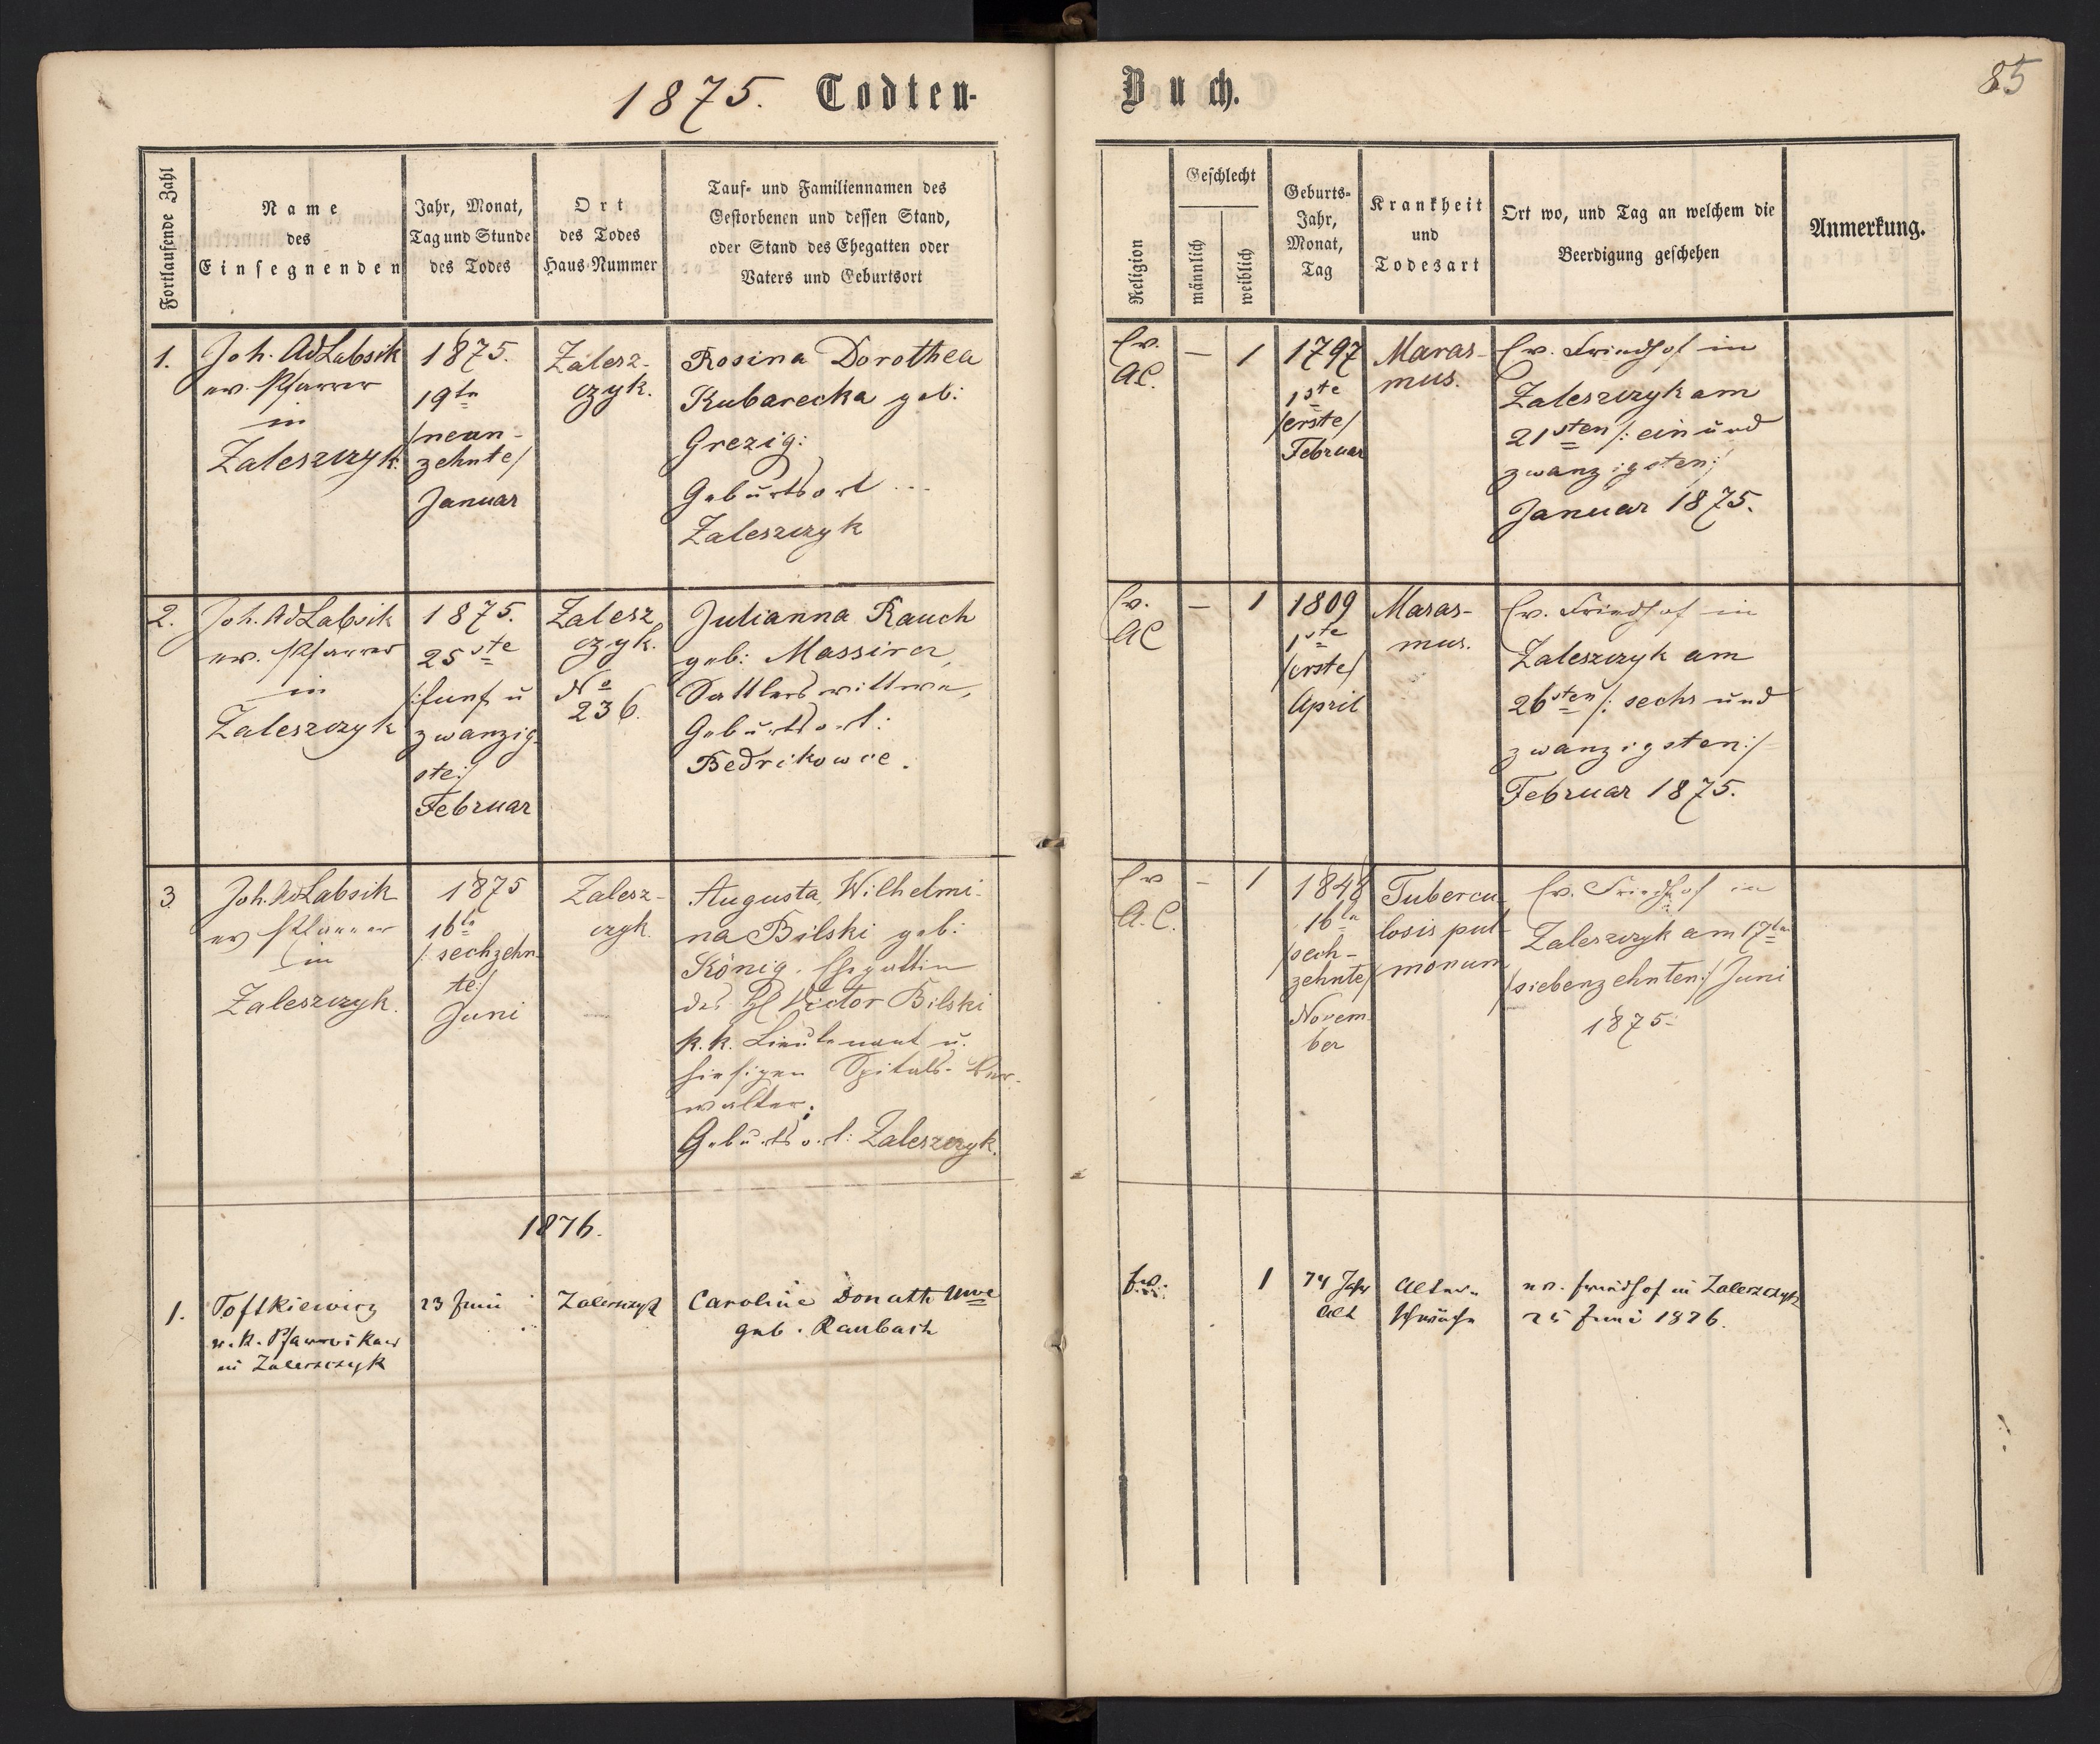 1875. Todten-
Buch.
85
Fortlaufende Zahl
Name
des
Einsegnenden
Jahr, Monat,
Tag und Stunde
des Todes
Ort
des Todes
Haus-Nummer
Tauf- und Familiennamen des
Gestorbenen und dessen Stand,
oder Stand des Ehegatten oder
Vaters und Geburtsort
Religion
Geschlecht
männlich
weiblich
Geburts-
Jahr,
Monat,
Tag
Krankheit
und
Todesart
Ort wo, und Tag an welchem die
Beerdigung geschehen
Anmerkung.
1.
Joh. Ad Labsik
ev. Pfarrer
in
Zaleszczyk
1875.
19te
/neun-
zehnte/
Januar
Zalesz-
czyk.
Rosina Dorothea
Kubarecka geb:
Grezig:
Geburtsort ...
Zaleszczyk
Ev.
AC.
—
1
1797
1ste
/erste/
Februar
Maras-
mus.
Ev. Friedhof in
Zaleszczyk am
21sten /: ein und
zwanzigsten:/
Januar 1875.
2.
Joh. Ad Labsik
ev. Pfarrer
in
Zaleszczyk
1875.
25ste
/:fünf u
zwanzig-
ste:/
Februar
Zalesz
czyk.
No
236.
Julianna Rauch
geb: Massirer,
Sattlerswittwe,
Geburtsort:
Bedrikowce.
Ev.
AC
—
1
1809
1ste
/erste/
April
Maras-
mus.
Ev. Friedhof in
Zaleszczyk am
26sten /: sechs und
zwanzigsten:/
Februar 1875.
3
Joh. Ad Labsik
ev Pfarrer
in
Zaleszczyk.
1875
16te
/: sechzehn
te:/
Juni
Zalesz-
czyk.
Augusta, Wilhelmi-
na Bilski geb:
König. Ehegattin
des H Victor Bilski
k. k. Lieutenant u.
hiesigen Spitals-Ver-
walter;
Geburtsort: Zaleszczyk.
Ev
A.C.
—
1
1848
16te
/sech-
zehnte/
Novem-
ber
Tubercu-
losis pul-
monum
Ev. Friedhof in
Zaleszczyk am 17ten
/siebenzehnten:/ Juni
1875.
1876.
1.
in Zaleszczyk
23 Juni
Zaleszczyk
Caroline Donath Wwe
geb. Raubach
Ev.
1
74 Jahr
alt
Alters-
schwäche
ev. Friedhof in Zaleszczyk
25 Juni 1876.